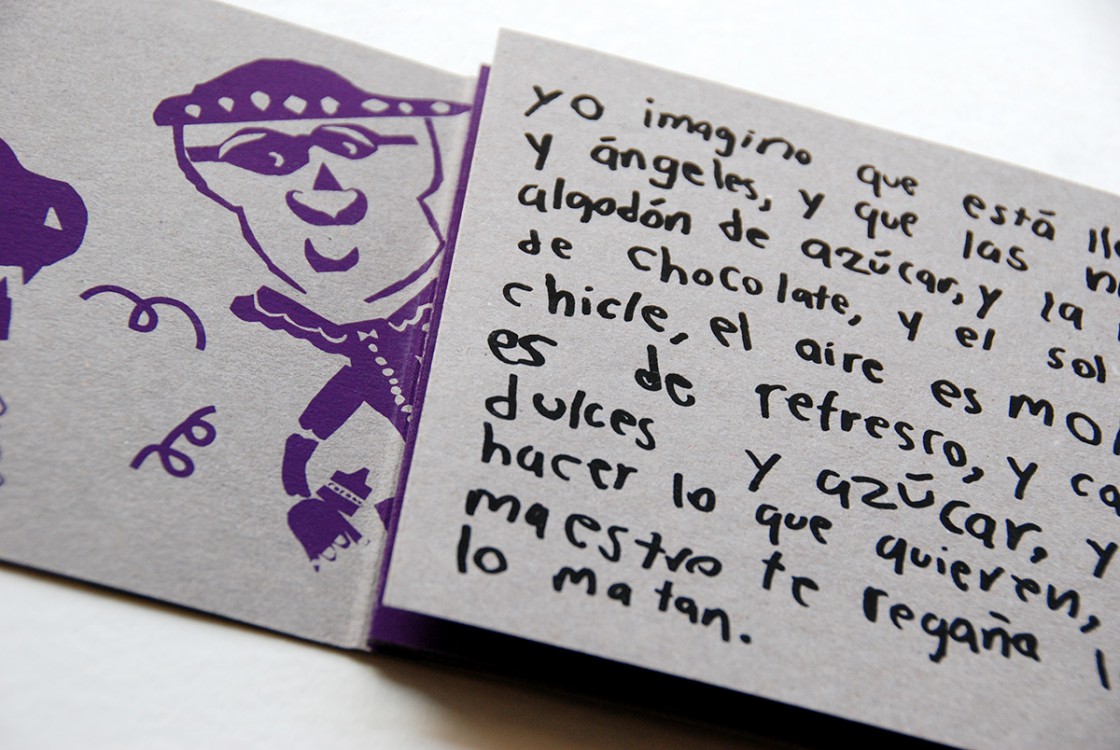 yo imagino que está
y ángeles, y que las
algodón de azúcar, y la
de chocolate, y el sol
chicle, el aire es
es de refresco, y
dulces y azúcar, y
hacer lo que quieren,
maestro te regaña
lo matan.